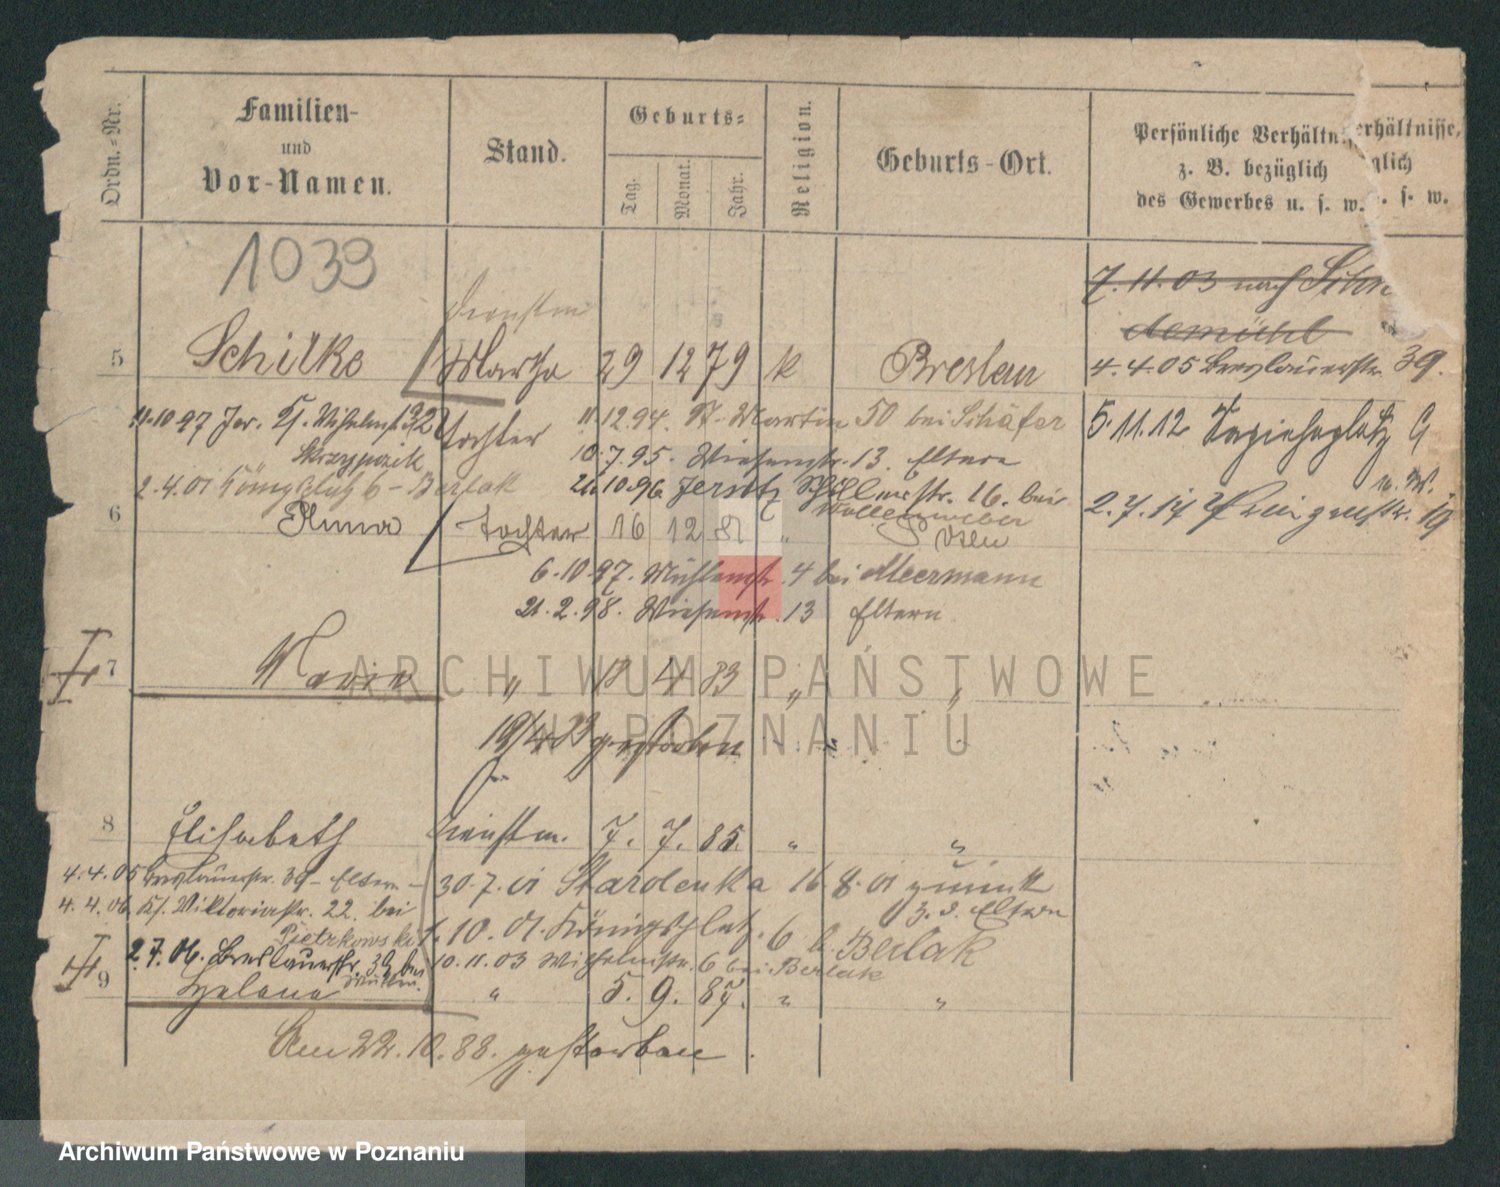 Ordn.-Nr.
Familien-
und
Vor-Namen.
Stand.
Geburts-
Tag.
Monat.
Jahr.
Religion.
Geburts-Ort.
Persönliche Verhältn
z. B. bezüglich
des Gewerbes u. s. w.
erhältnisse,
glich
s. w.
1033
7.11.03 nach
Dienstm
5 Schilke Martha 29 12 79 k Breslau
4.4.05 Breslauerstr. 39.
11.10.97 Jer. Wilhelmst 32 Tochter 11.12.94. St. Martin 50 bei Schäfer
5.11.12 9
Skrzypczik 10.7.95. Wiesenstr. 13. Eltern
2.4.01 Königsplatz 6 - Berlak 21.10.96 Jersitz Schillerstr. 16. bei
Wollenweber
2.7.14 19
6 Anna Tochter 16 12 81 " Posen
6.10.97. Mühlenstr. 4 bei Meermann
21.2.98. Wiesenstr. 13 Eltern
7 Maria " 19 4 83 " "
19/4 83 gestorben
8 Elisabeth Dienstm. 7. 7. 85. " "
4.4.05 Breslauerstr. 39 - Eltern - 30.7.01 Starolenka 16.8.01 zurück
z. d. Eltern
4.4.06 Kl. Viktoriastr. 22. bei
Pietrkowski 1.10.01. Königsplatz. 6 b. Berlak
2.7.06. Breslauerstr. 39 bei 10.11.03 Wilhelmstr. 6 bei Berlak
9 Helene " 5. 9. 87. " "
Am 22.10.88. gestorben.
ARCHIWUM PAŃSTWOWE
W POZNANIU
Archiwum Państwowe w Poznaniu